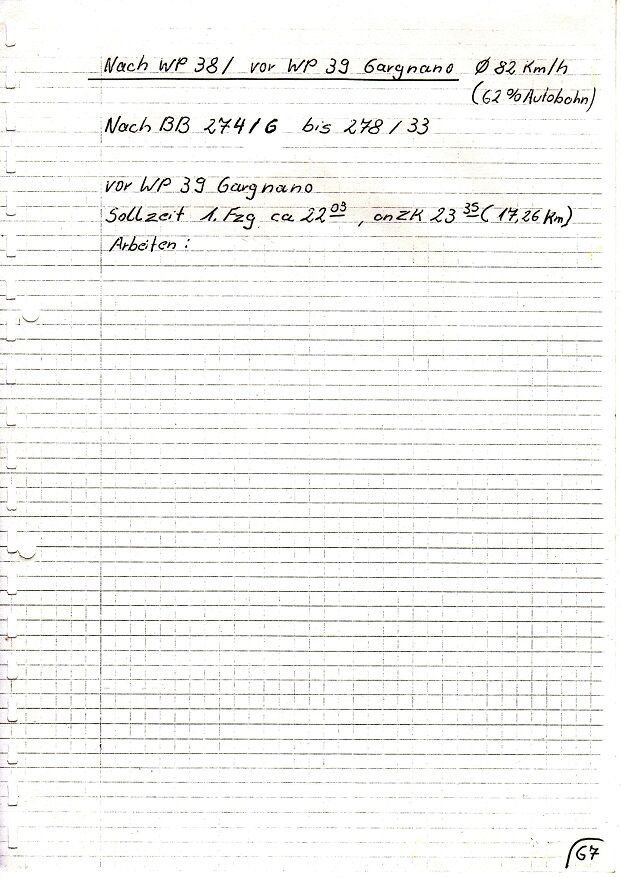 Nach WP 38/ vor WP 39 Gargnano Ø 82 Km/h
(62 % Autobahn)
Nach BB 274/6 bis 278/33
vor WP 39 Gargnano
Sollzeit 1. Fzg ca 22 03, an ZK 23 35 (17,26 Km)
Arbeiten:
67